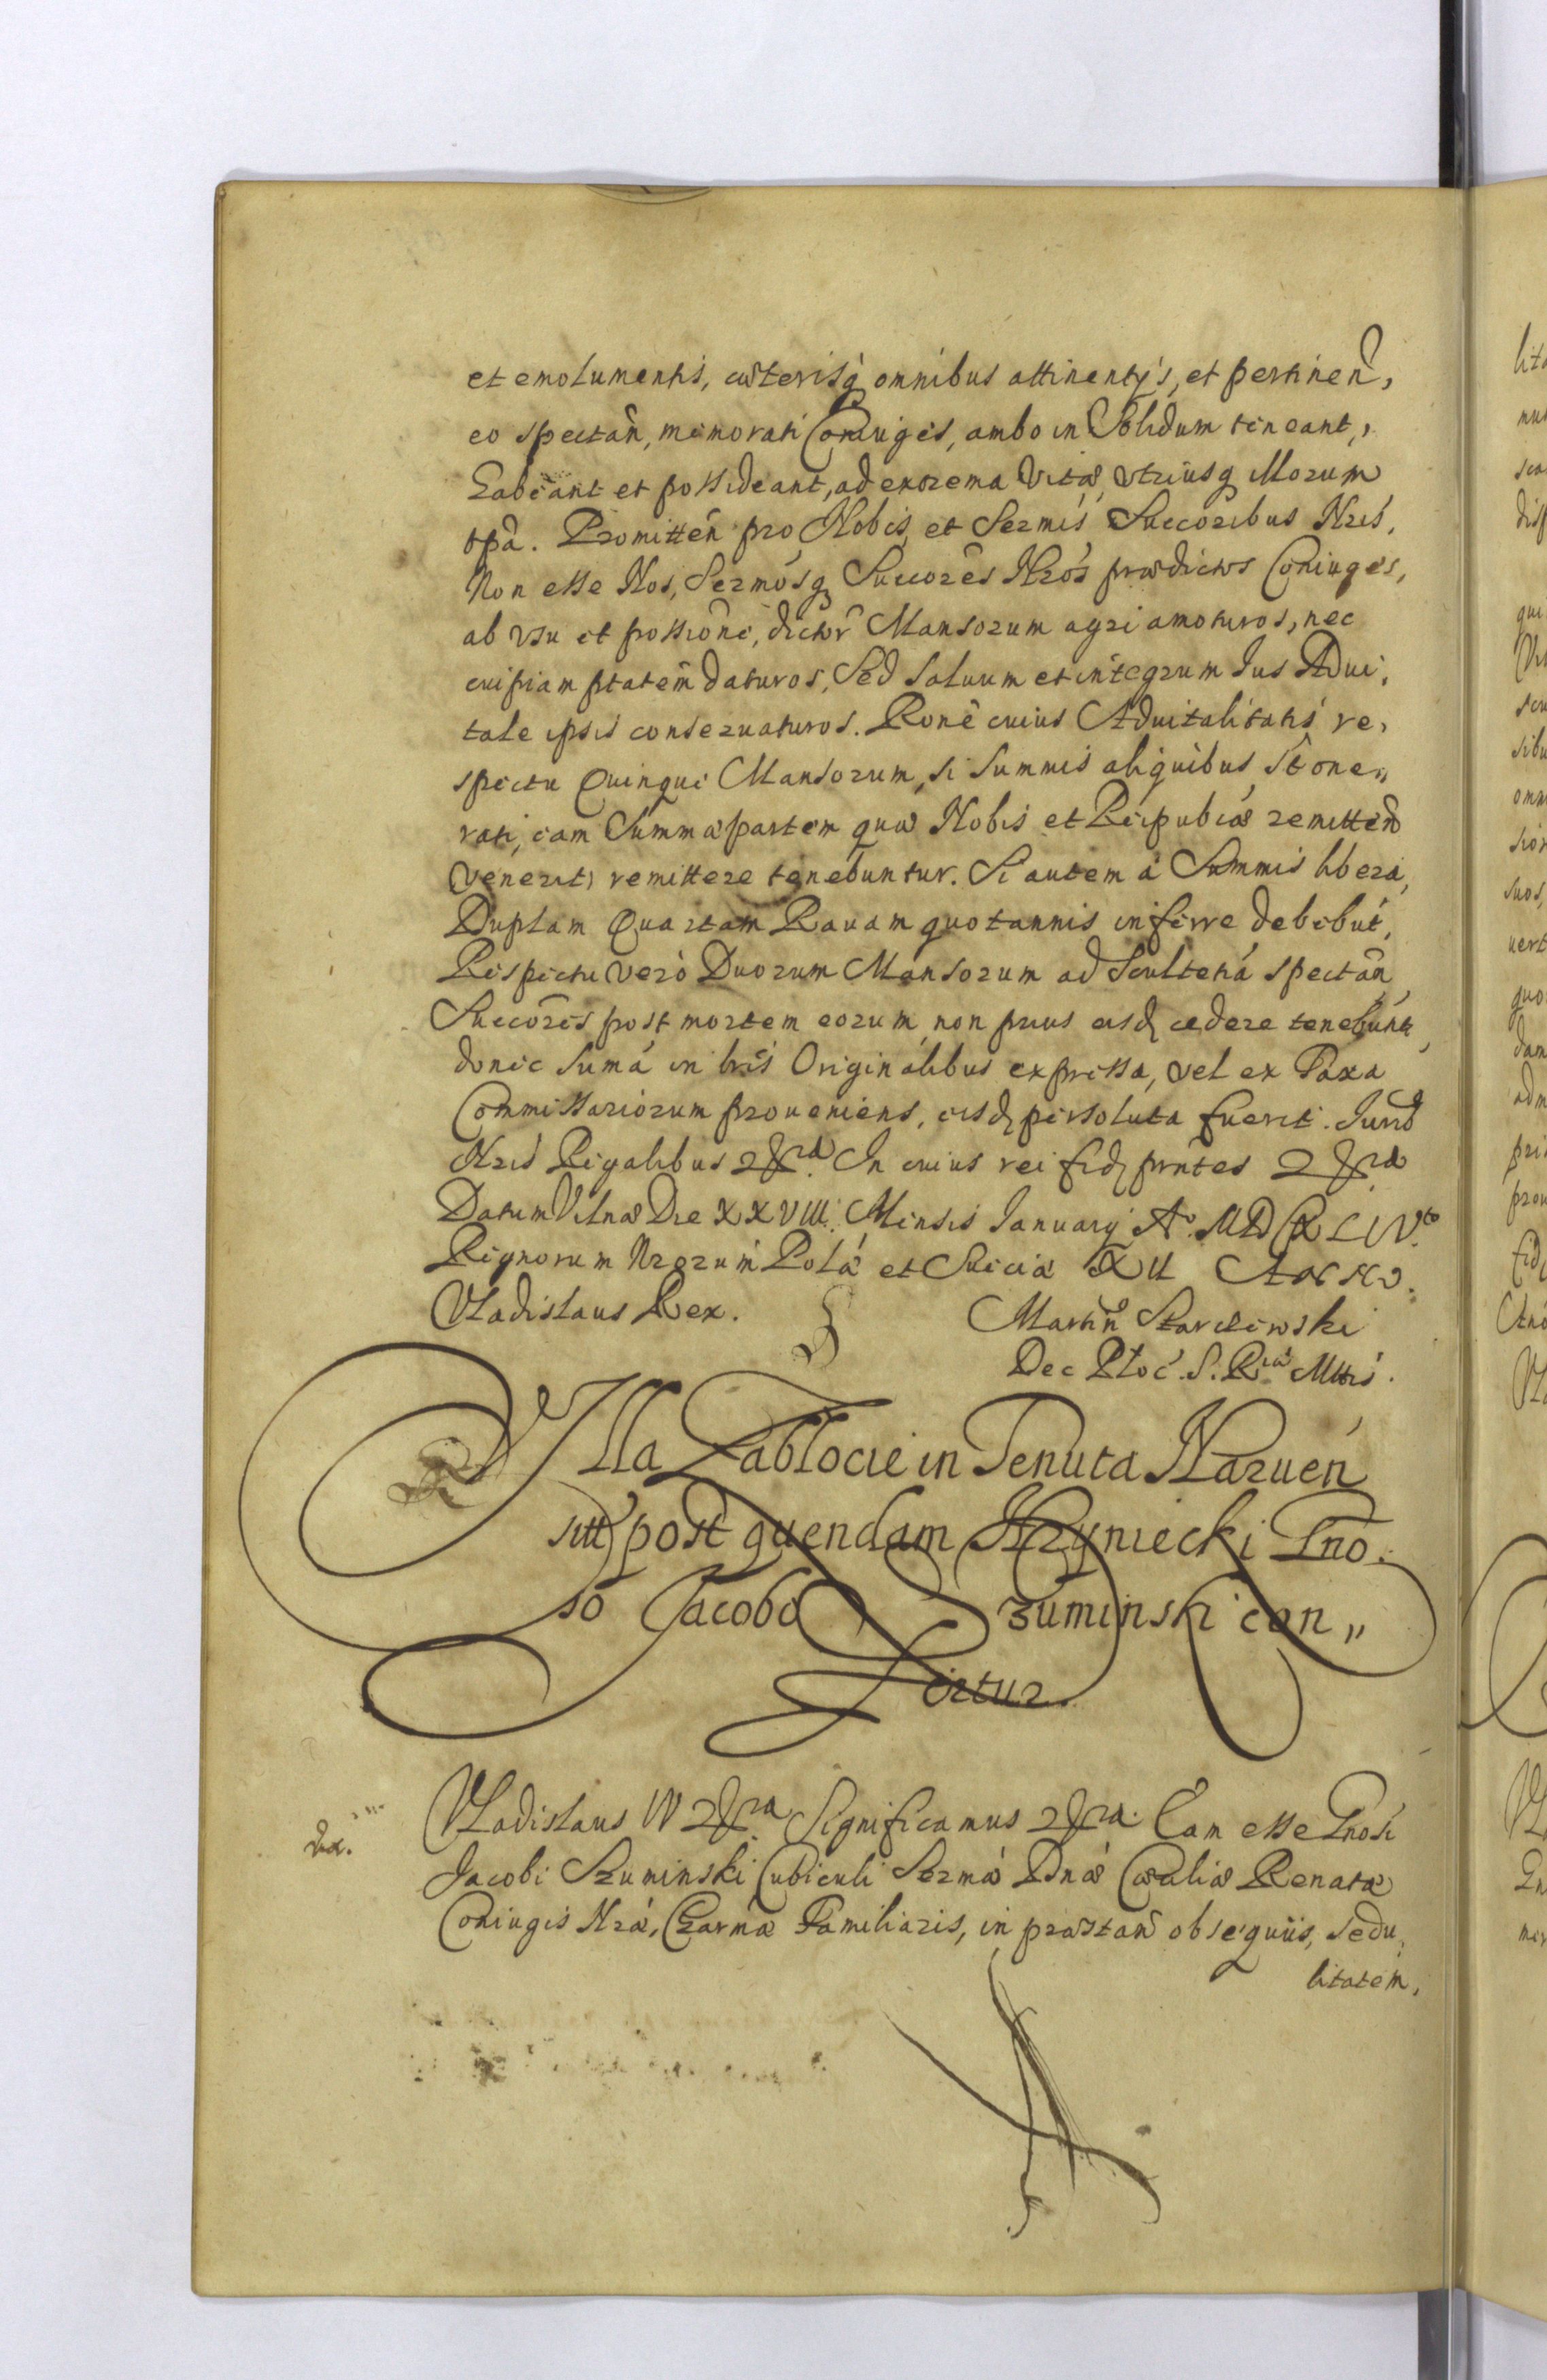 et emolumentis, cæterisq; omnibus attinentÿs, et pertinen̄,
eo spectan̄, memorati Coniuges, ambo in Solidum teneant,
habeant et possideant, ad extrema Vitæ, vtriusq; Illorum
tp̄a. Promitten̄ pro Nobis, et Sermis Succoribus Nris,
Non esse Nos, Sermosq; Succores Nros prædictos Coniuges,
ab vsu et possione, dictor̄ Mansorum agri amoturos, nec
cuipiam ptatem daturos, Sed saluum et integrum Ius Adui,
tale ipsis conseruaturos. Rone cuius Aduitalitatis re,
spectu Quinque Mansorum, si summis aliquibus st one,,
rati, eam Summæ partem quæ Nobis et Reipubcæ remitten̄
Venerit, remittere tenebuntur. Si autem á Summis liberi,
Duplam Quartam Rauam quotannis inferre debebut,
Respectu verò Duorum Mansorum ad Scultetiá spectan̄,
Succores post mortem eorum, non prius eisd; cedere tenebunt,
donec suma in lris Originalibus expressa, vel ex Taxa
Commissariorum proueniens, eisd; persoluta fuerit. Iurib
Nris Regalibus &ra In cuius rei fid; pntes &ra
Datum Vilnæ Die XXVIII. Mensis Ianuarÿ Ao. MDCXLIVto.
Regnorum Nrorum Polæ et Sueciæ XII Anno.
Vladislaus Rex.
Martin̄ Starczewski
Dec Ploc. S. Riæ Mttis.
Villa Zablocie in Tenuta Naruen̄
sitt post quendam Hryniecki Gno.
so Jacobo Szuminski con,,
fertur.
Vladislaus IV &ra Significamus &ra. Eam esse Gnosi
Jacobi Szuminski Cubiculi Sermæ Dnæ Cæciliæ Renatæ
Coniugis Nræ, Charmæ Familiaris, in præstan̄ obsequiis, sedu,
litatem,